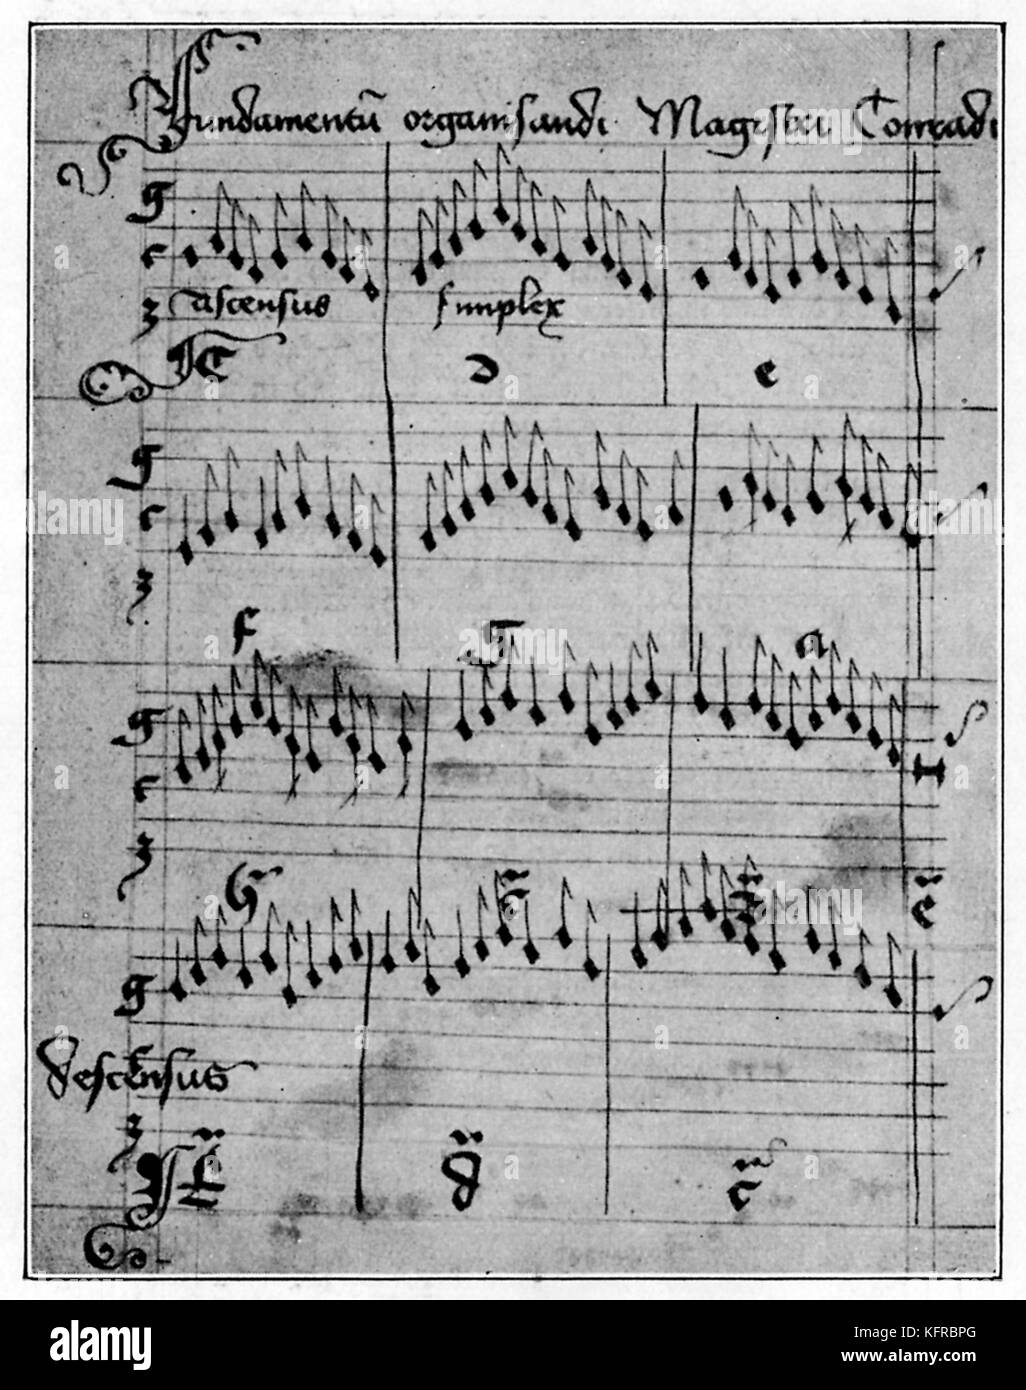 Fundamentũ organisandi Magistri Conradi
g
c
ascensus simplex
C d e
g
c
f g a
g
c
g
descensus
d
c
alamy
Image ID: KFRBPG
www.alamy.com